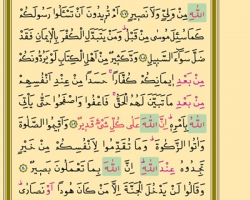 ٱللَّهِ مِن وَلِىٍّ وَلَا نَصِيرٍ ١٠٧ أَمْ تُرِيدُونَ أَن تَسْـَٔلُوا۟ رَسُولَكُمْ
كَمَا سُئِلَ مُوسَىٰ مِن قَبْلُ ۗ وَمَن يَتَبَدَّلِ ٱلْكُفْرَ بِٱلْإِيمَٰنِ فَقَدْ
ضَلَّ سَوَآءَ ٱلسَّبِيلِ ١٠٨ وَدَّ كَثِيرٌ مِّنْ أَهْلِ ٱلْكِتَٰبِ لَوْ يَرُدُّونَكُم
مِّنۢ بَعْدِ إِيمَٰنِكُمْ كُفَّارًا حَسَدًا مِّنْ عِندِ أَنفُسِهِم
مِّنۢ بَعْدِ مَا تَبَيَّنَ لَهُمُ ٱلْحَقُّ ۖ فَٱعْفُوا۟ وَٱصْفَحُوا۟ حَتَّىٰ يَأْتِىَ
ٱللَّهُ بِأَمْرِهِۦٓ ۗ إِنَّ ٱللَّهَ عَلَىٰ كُلِّ شَىْءٍ قَدِيرٌ ١٠٩ وَأَقِيمُوا۟ ٱلصَّلَوٰةَ
وَءَاتُوا۟ ٱلزَّكَوٰةَ ۚ وَمَا تُقَدِّمُوا۟ لِأَنفُسِكُم مِّنْ خَيْرٍ
تَجِدُوهُ عِندَ ٱللَّهِ ۗ إِنَّ ٱللَّهَ بِمَا تَعْمَلُونَ بَصِيرٌ ١١٠
وَقَالُوا۟ لَن يَدْخُلَ ٱلْجَنَّةَ إِلَّا مَن كَانَ هُودًا أَوْ نَصَٰرَىٰ ۗ